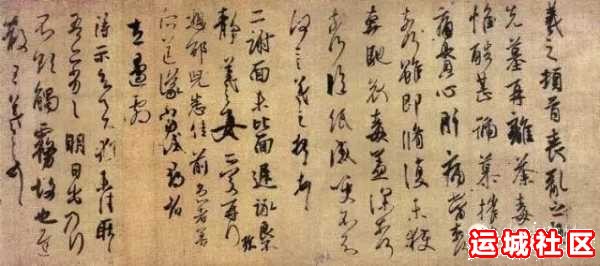 羲之頓首喪亂之極
先墓再離荼毒追
惟酷甚號慕摧絕
痛貫心肝痛當奈何
奈何雖即脩復未獲
奔馳哀毒益深奈何
奈何臨紙感哽不知
何言羲之頓首頓首
二謝面未比面遲詠良不
靜羲之女愛再拜
想邵兒悉佳前患者善
所送議當試尋省
左邊劇
得示知足下猶未佳耿耿
吾亦劣劣明日出乃行
不欲觸霧故也遲
散王羲之頓首
运城社区